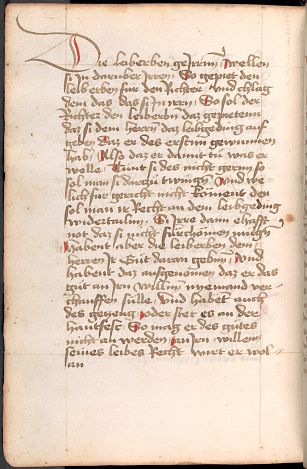 Die leiberben ge wellen
si In darüber Irren So gepiet den
leib erben für den Richter Vnd chlag
dem das das si In irren So sol der
Richter den leiberbn daz gepieten
daz si dem herrn daz leibgeding auf
geben daz er des ersten gewunnen
hab Also daz er damit tu was er
welle Tünt si des nicht gern so
sol man si darczu twingn Vnd we-
lich für gericht nicht koment den
sol man ir Recht an dem leibgeding
widertailn Si Irre dann ehafft
not daz si nicht fürchomen mügn
habent aber die leiberben dem
herren Ir Güt daran gebin Vnd
habent daz ausgenomen daz er das
güt an Irn willn nyemand ver-
chauffen sulle Vnd habet auch
des gezeug oder stet es an der
hantfest So mag er des gutes
nicht an werden an Irn willen
seines leibes Recht wirt er wol
an